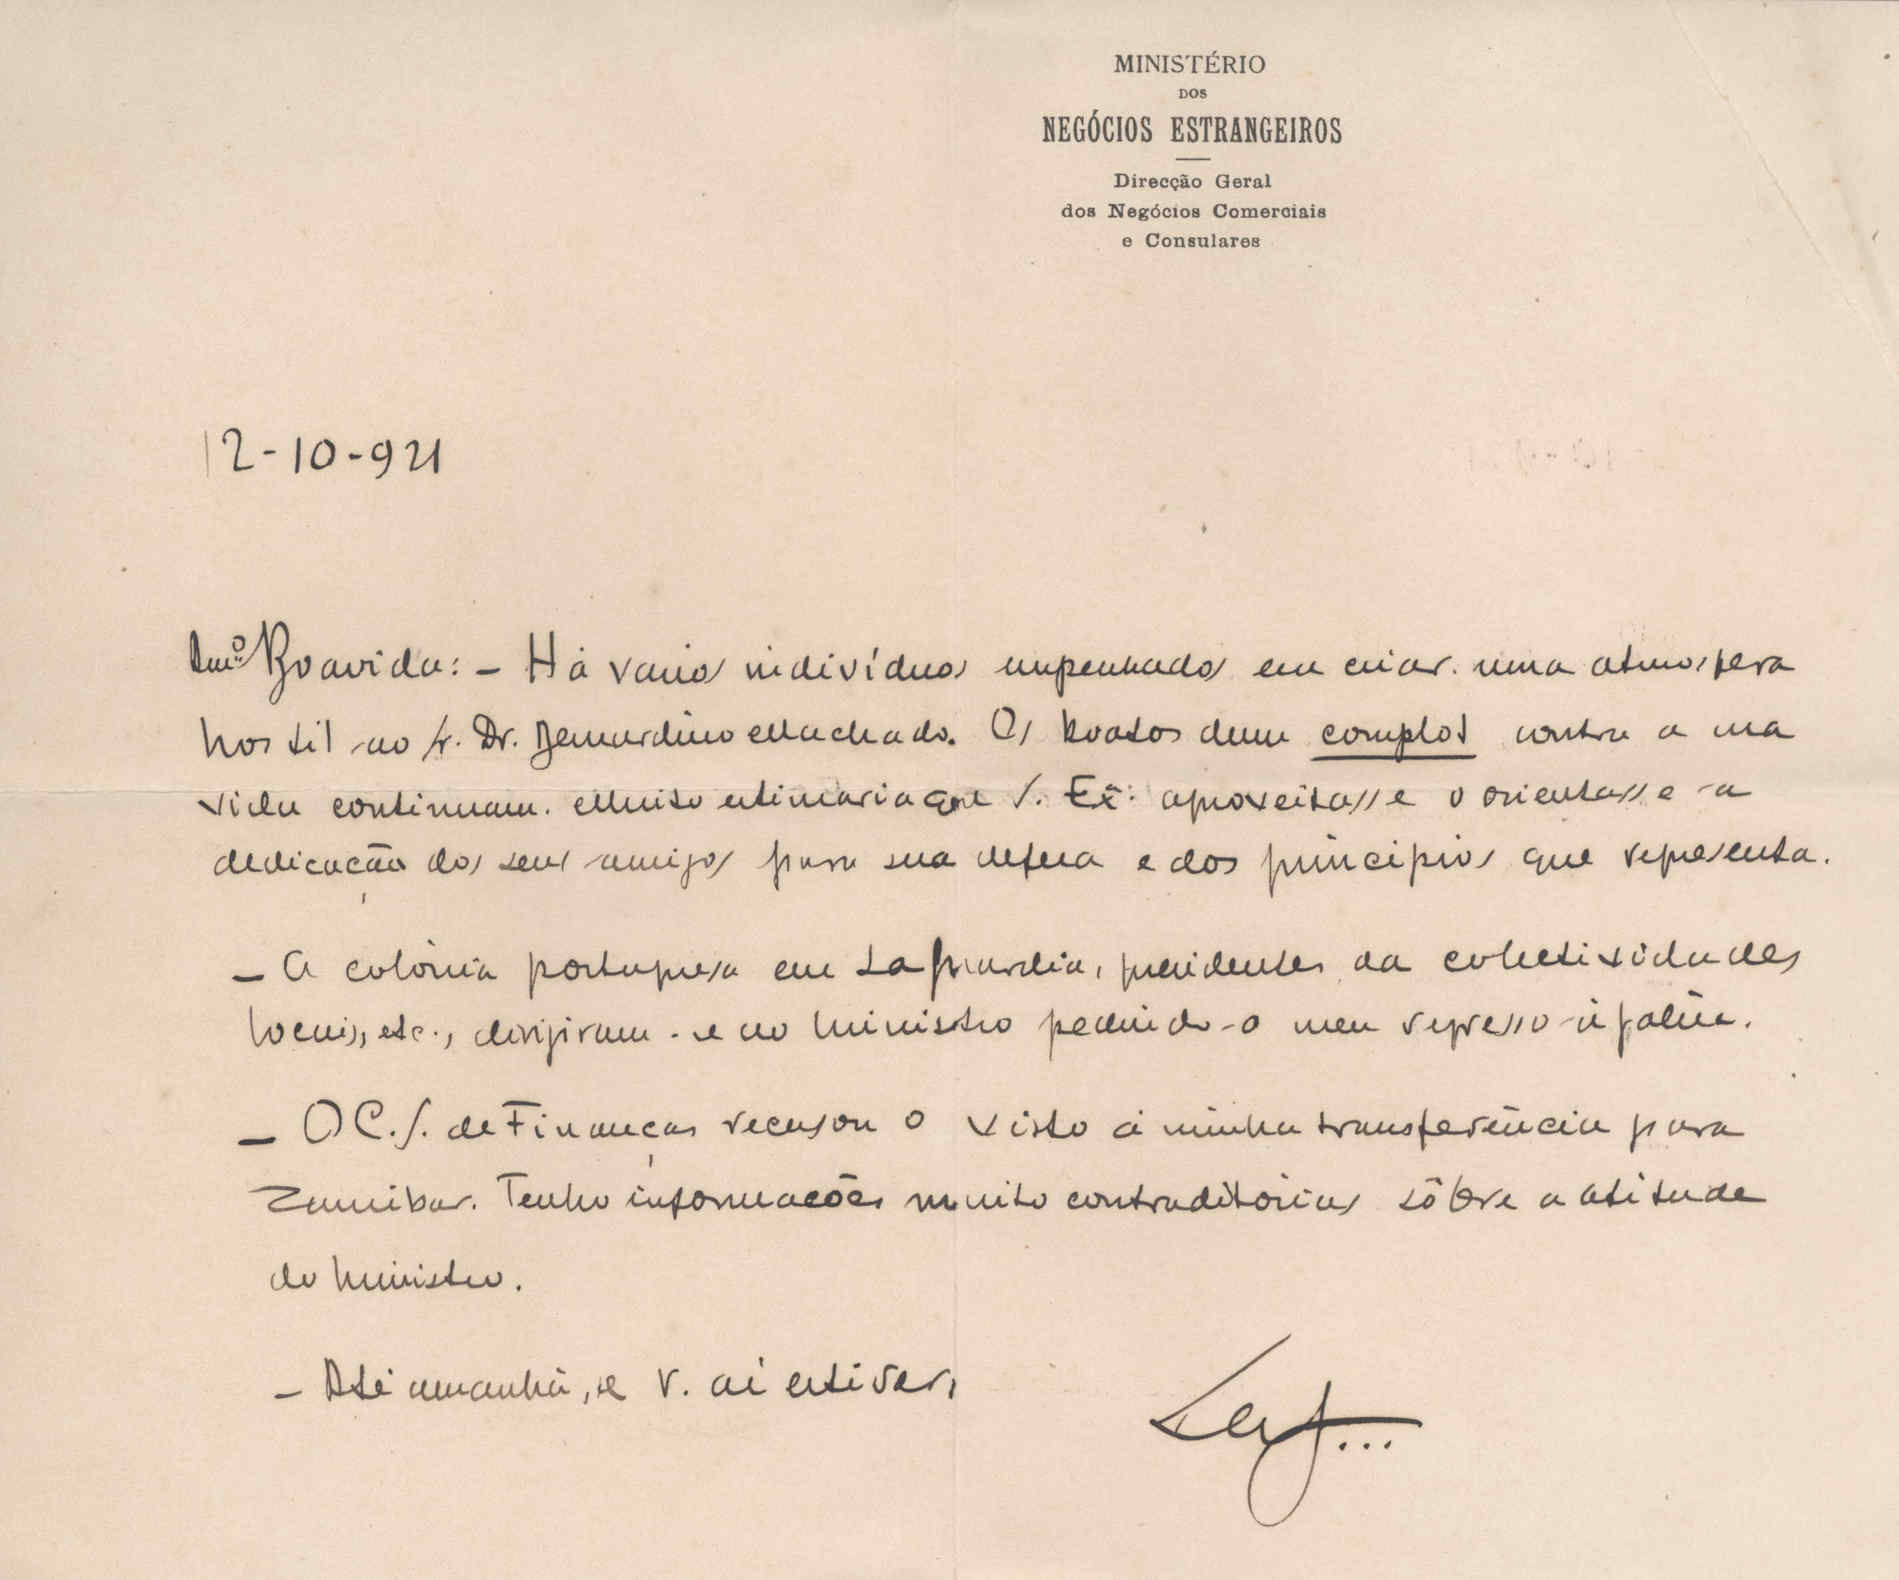 MINISTÉRIO
DOS
NEGÓCIOS ESTRANGEIROS
Direcção Geral
dos Negócios Comerciais
e Consulares
12-10-921
Amº Boavida: - Há varios indivíduos empenhados em criar uma atmosfera
hostil ao Sr. Dr. Bernardino Machado. Os boatos dum complot contra a sua
vida continuam. Muito estimaria que S. Exª aproveitasse e orientasse a
dedicação dos seus amigos para sua defesa e dos princípios que representa.
- A colónia portuguesa em La Guardia, presidentes da colectividades
locais, etc., dirigiram-se ao ministro pedindo o meu regresso à Galiza.
- O C. S. de Finanças recusou o visto á minha transferência para
Zanzibar. Tenho informações muito contraditórias sôbre a atitude
do ministro.
- Até amanhã, se V. aí estiver,